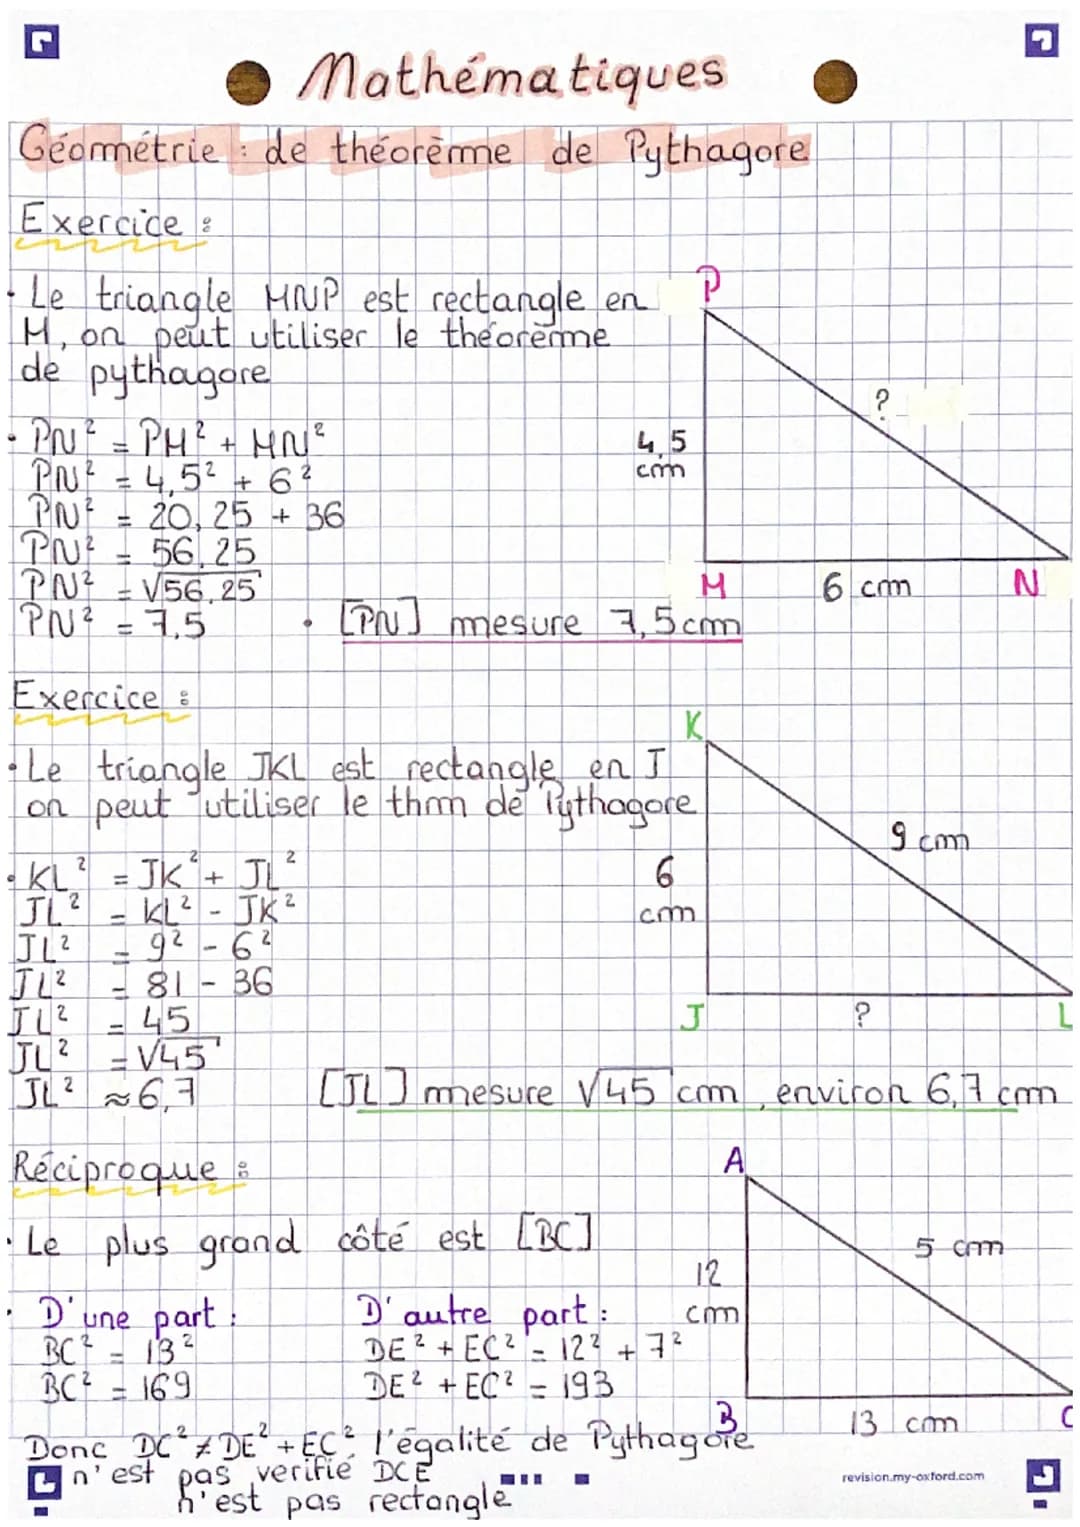 Mathématiques
Géométrie : de théorème de Pythagore
Exercice :
• Le triangle MNP est rectangle en
M, on peut utiliser le théorème
de pythagore
• PN² = PM² + MN²
PN² = 4,5² + 6²
PN² = 20,25 + 36
PN² = 56,25
PN² = √56,25
PN² = 7,5
• [PN] mesure 7,5cm
P
?
4,5
cm
M
6 cm
N
Exercice :
• Le triangle JKL est rectangle en J
on peut utiliser le thm de Pythagore
• KL² = JK² + JL²
JL² = KL² - JK²
JL² = 9² - 6²
JL² = 81 - 36
JL² = 45
JL² = √45
JL² ≈ 6,7
[JL] mesure √45 cm, environ 6,7 cm
K
9 cm
6
cm
J
?
L
Réciproque :
• Le plus grand côté est [BC]
• D'une part :
BC² = 13²
BC² = 169
D'autre part :
DE² + EC² = 12² + 7²
DE² + EC² = 193
Donc DC² ≠ DE² + EC², l'égalité de Pythagore
n'est pas verifié DCE
n'est pas rectangle
A
5 cm
12
cm
B
13 cm
C
revision.my-oxford.com